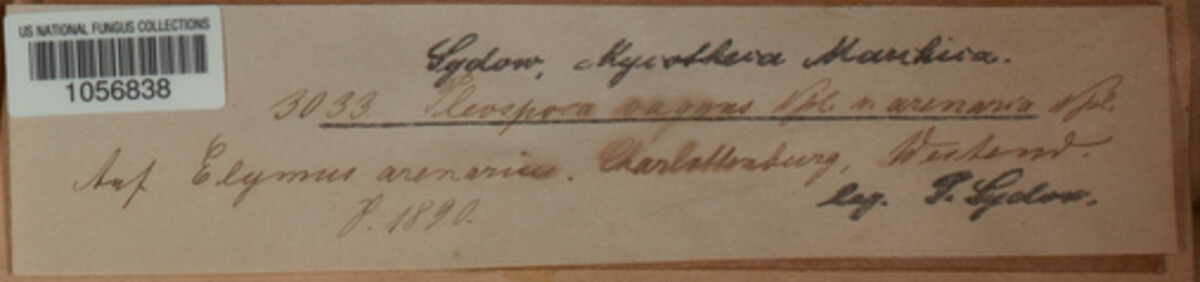 US NATIONAL FUNGUS COLLECTIONS
1056838
Sydow, Mycotheca Marchica.
3033. Pleospora vagans Npl. v. arenaria Npl.
Auf Elymus arenarius. Charlottenburg, Westend.
8. 1890.
leg. P. Sydow.